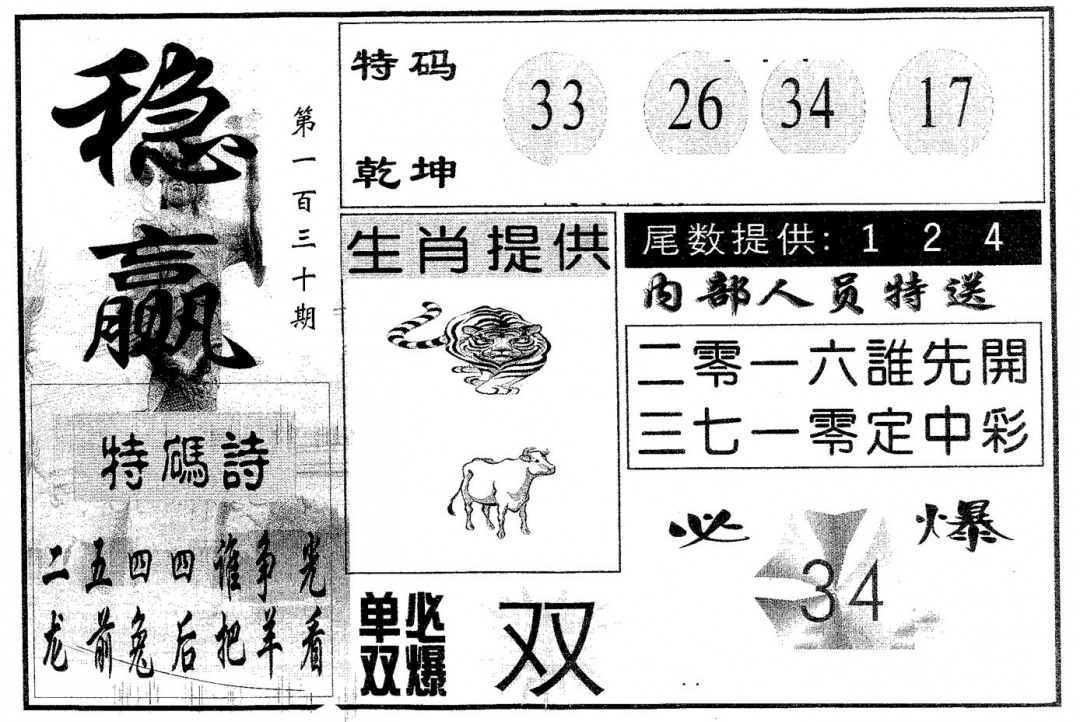 稳赢
第一百三十期
特码诗
二五四四谁争光
龙前兔后把羊看
特码
乾坤
33 26 34 17
生肖提供
单双
必爆
双
尾数提供: 1 2 4
内部人员特送
二零一六誰先開
三七一零定中彩
必爆
34